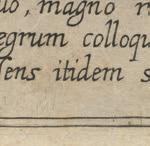 uo, magno
egrum colloqu
iens itidem s